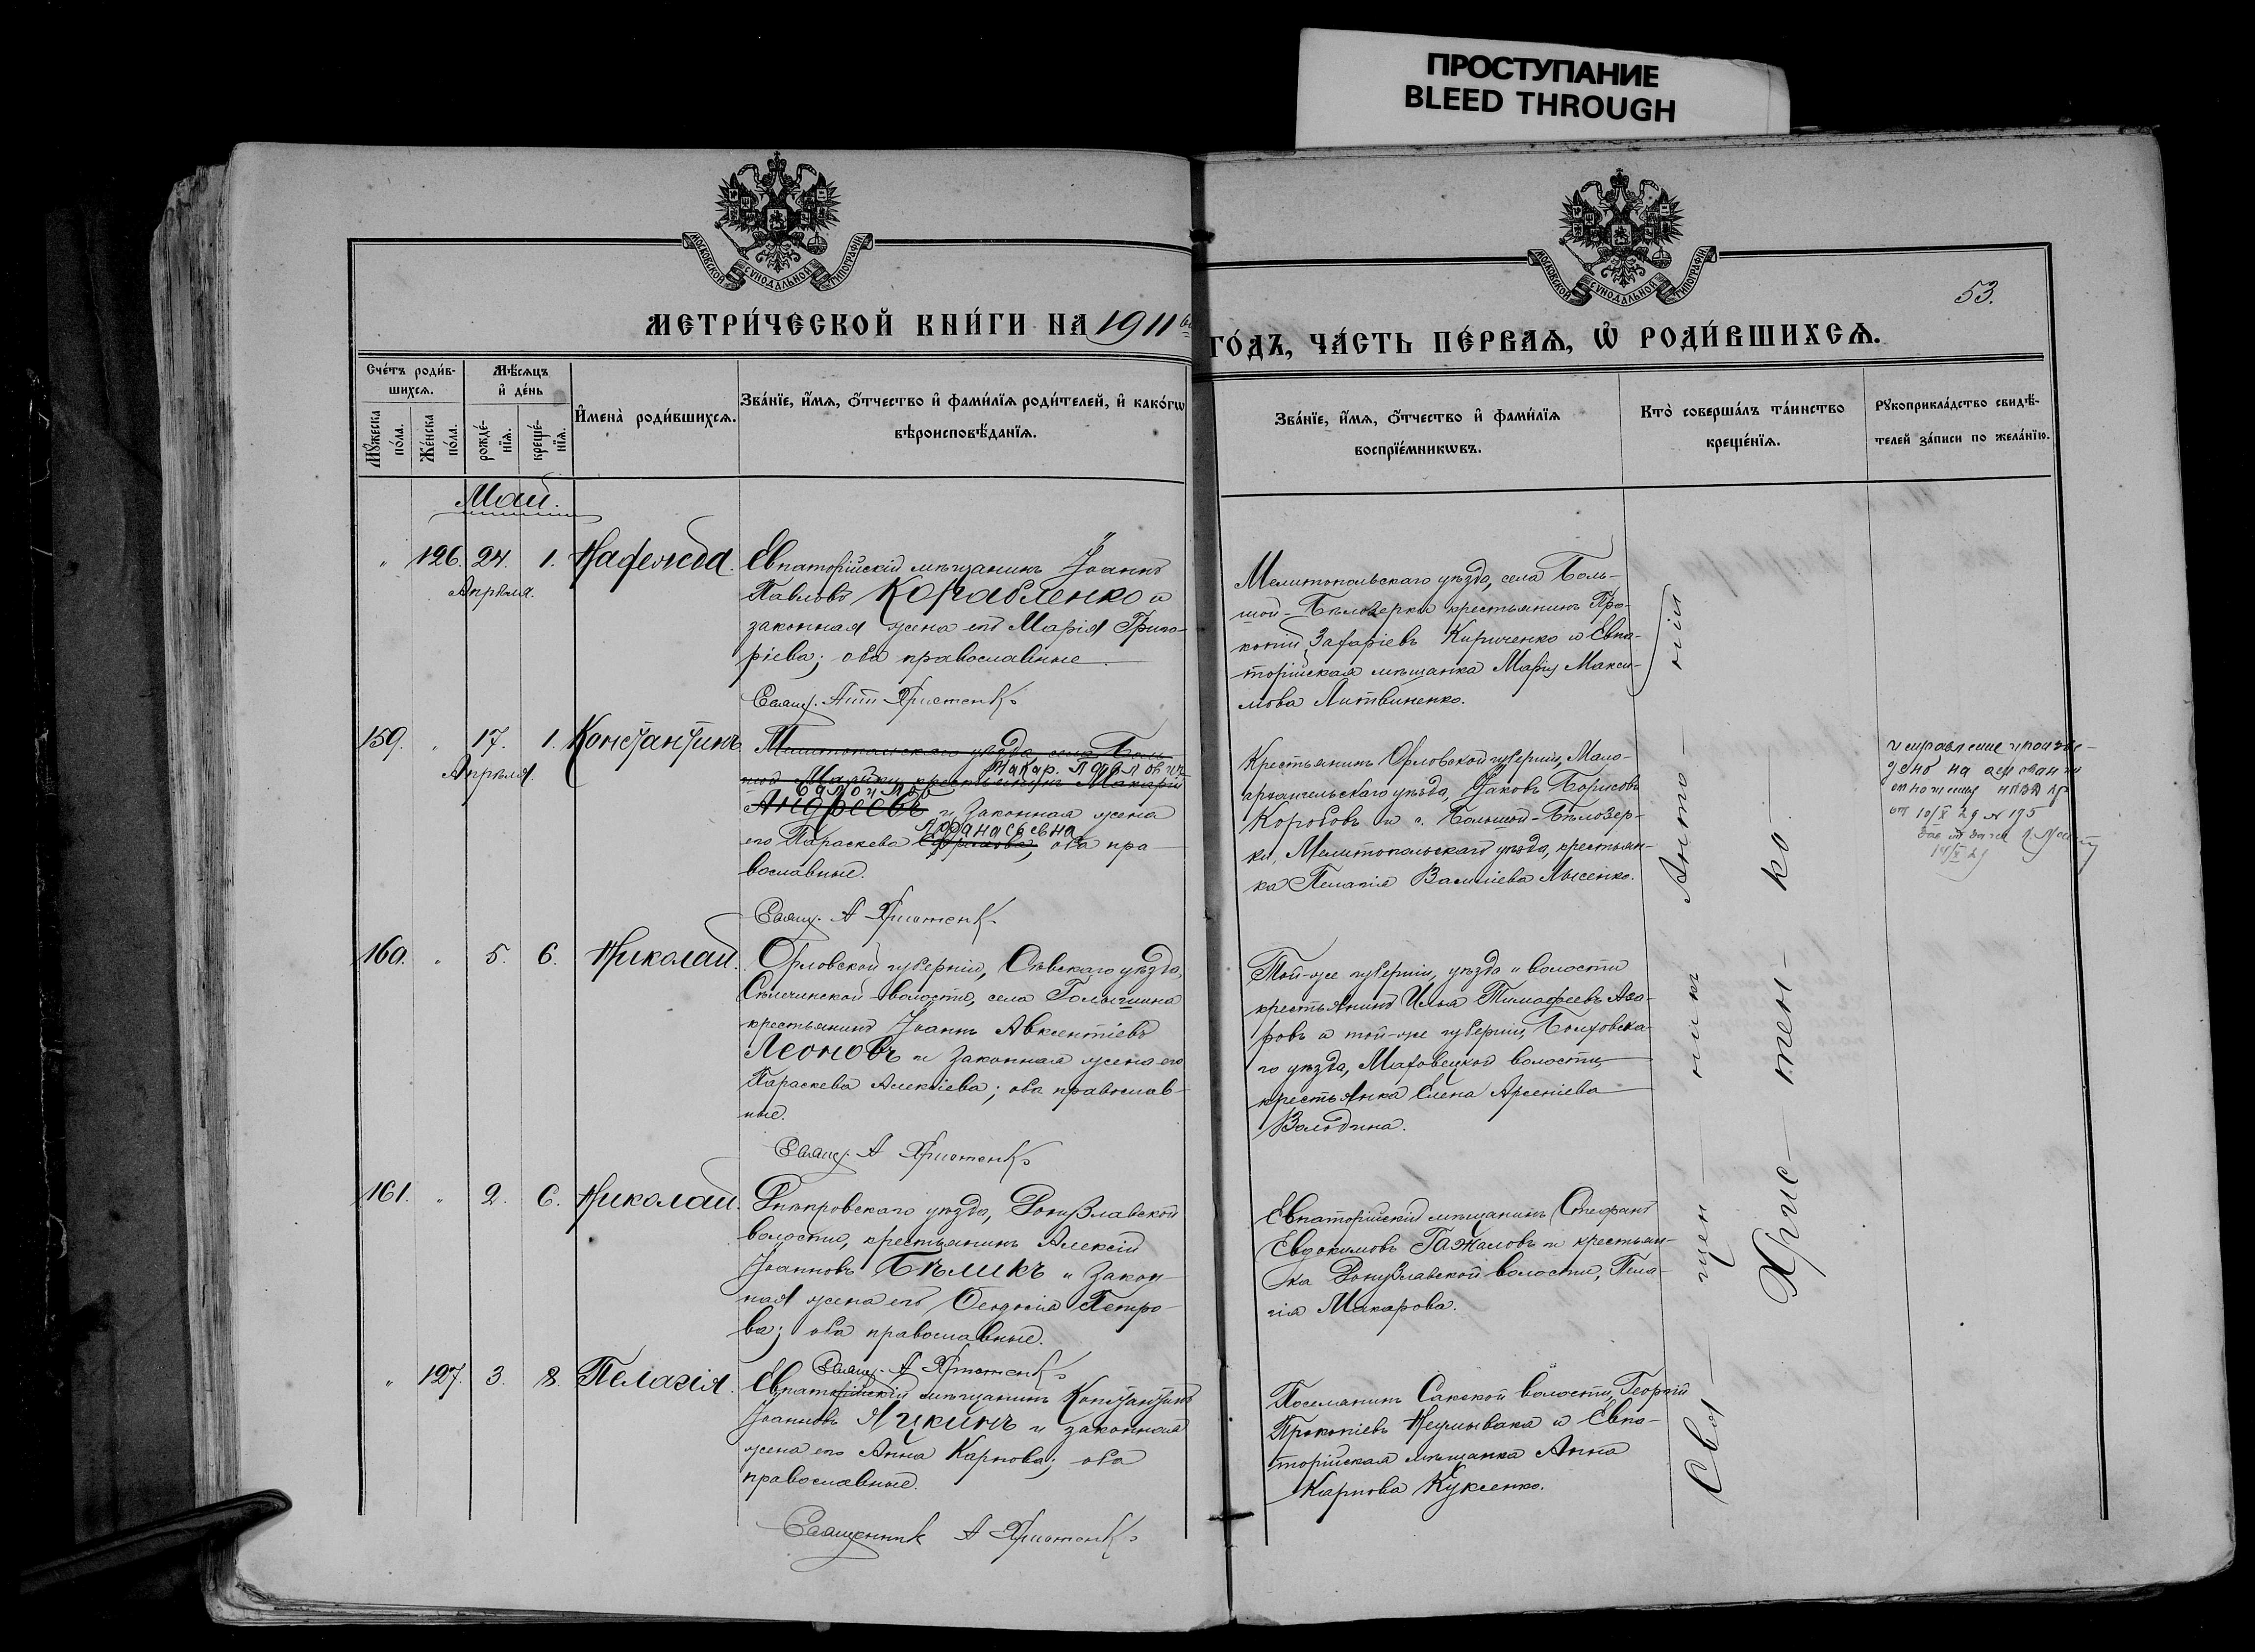 ПРОСТУПАНИЕ
BLEED THROUGH
МОСКОВСКОЙ СѴНОДАЛЬНОЙ ТИПОГРАФІИ
МОСКОВСКОЙ СѴНОДАЛЬНОЙ ТИПОГРАФІИ
53.
МЕТРИ́ЧЕСКОЙ КНИ́ГИ НА 1911
ГО́ДЪ, ЧА́СТЬ ПЕ́РВАѦ, Ѡ҆ РОДИ́ВШИХСѦ.
Сче́тъ роди́в-
шихсѧ.
Мѣ́сѧцъ
и҆ де́нь
Мꙋ́жеска
по́ла.
Же́нска
по́ла.
рожде́-
нїѧ.
креще́-
нїѧ.
И҆мена̀ роди́вшихсѧ.
Зва́нїе, и҆́мѧ, ѻ҆́тчество и҆ фами́лїѧ роди́телей, и҆ како́гѡ
вѣроисповѣ́данїѧ.
Зва́нїе, и҆́мѧ, ѻ҆́тчество и҆ фами́лїѧ
воспрїе́мникѡвъ.
Кто̀ соверша́лъ та́инство
креще́нїѧ.
Рꙋкоприкла́дство свидѣ́-
телей за́писи по жела́нїю.
Май.
" 126. 24. 1. Надежда.
Апрѣля.
Евпаторійскій мѣщанинъ Іоаннъ
Павловъ Корабленко и
законная жена его Марія Григо-
рiева; оба православные.
Свящ. Ант Христенко
Мелитопольскаго уѣзда, села Боль-
шой-Бѣлозерки крестьянинъ Про-
копій Захаріевъ Кириченко и Евпа-
торійская мѣщанка Марія Макси-
мова Литвиненко.
159. " 17. 1. Константинъ
Апрѣля.
Мелитопольскаго уѣзда, села Боль-
шой крестьянинъ Макарій
Макар. Павлович
Андреевъ и законная жена
Афанасьевна
его Параскева оба пра-
вославные.
Свящ. А Христенко
Крестьянинъ Орловской губерніи, Мало-
архангельскаго уѣзда, Яковъ Борисовъ
Коробовъ и с. Большой-Бѣлозер-
ки, Мелитопольскаго уѣзда, крестьян-
ка Пелагія Василіева Лысенко.
исправление произве-
дено на основании
от 10/X 29 № 195
160. " 5. 6. Николай.
Орловской губерніи, Сѣвскаго уѣзда,
волости, села
крестьянинъ Іоаннъ Авксентіевъ
Леоновъ и законная жена его
Параскева Алексіева; оба православ-
ные.
Свящ. А Христенко
Той-же губерніи, уѣзда и волости
крестьянинъ Илья Тимофеевъ Аза-
ровъ и той-же губерніи, Болховска-
го уѣзда, волости,
крестьянка Елена Арсеніева
Володина.
161. " 2. 6. Николай.
Днѣпровскаго уѣзда,
волости, крестьянинъ Алексій
Іоанновъ Бѣликъ и закон-
ная жена его Ѳеодосія Петро-
ва; оба православные.
Свящ. А Христенко
Евпаторійскій мѣщанинъ Стефанъ
Евдокимовъ Гажаловъ и крестьян-
ка волости, Пела-
гія Макарова.
" 127. 3. 8. Пелагія.
Евпаторійскій мѣщанинъ Константинъ
Іоанновъ Яцкинъ и законная
жена его Анна Карпова; оба
православные.
Священник А Христенко
Поселянинъ Сакской волости, Георгій
Прокопіевъ Неумывака и Евпа-
торійская мѣщанка Анна
Карпова Куксенко.
Свя — щен — никъ Анто — ній
Хрис — тен — ко